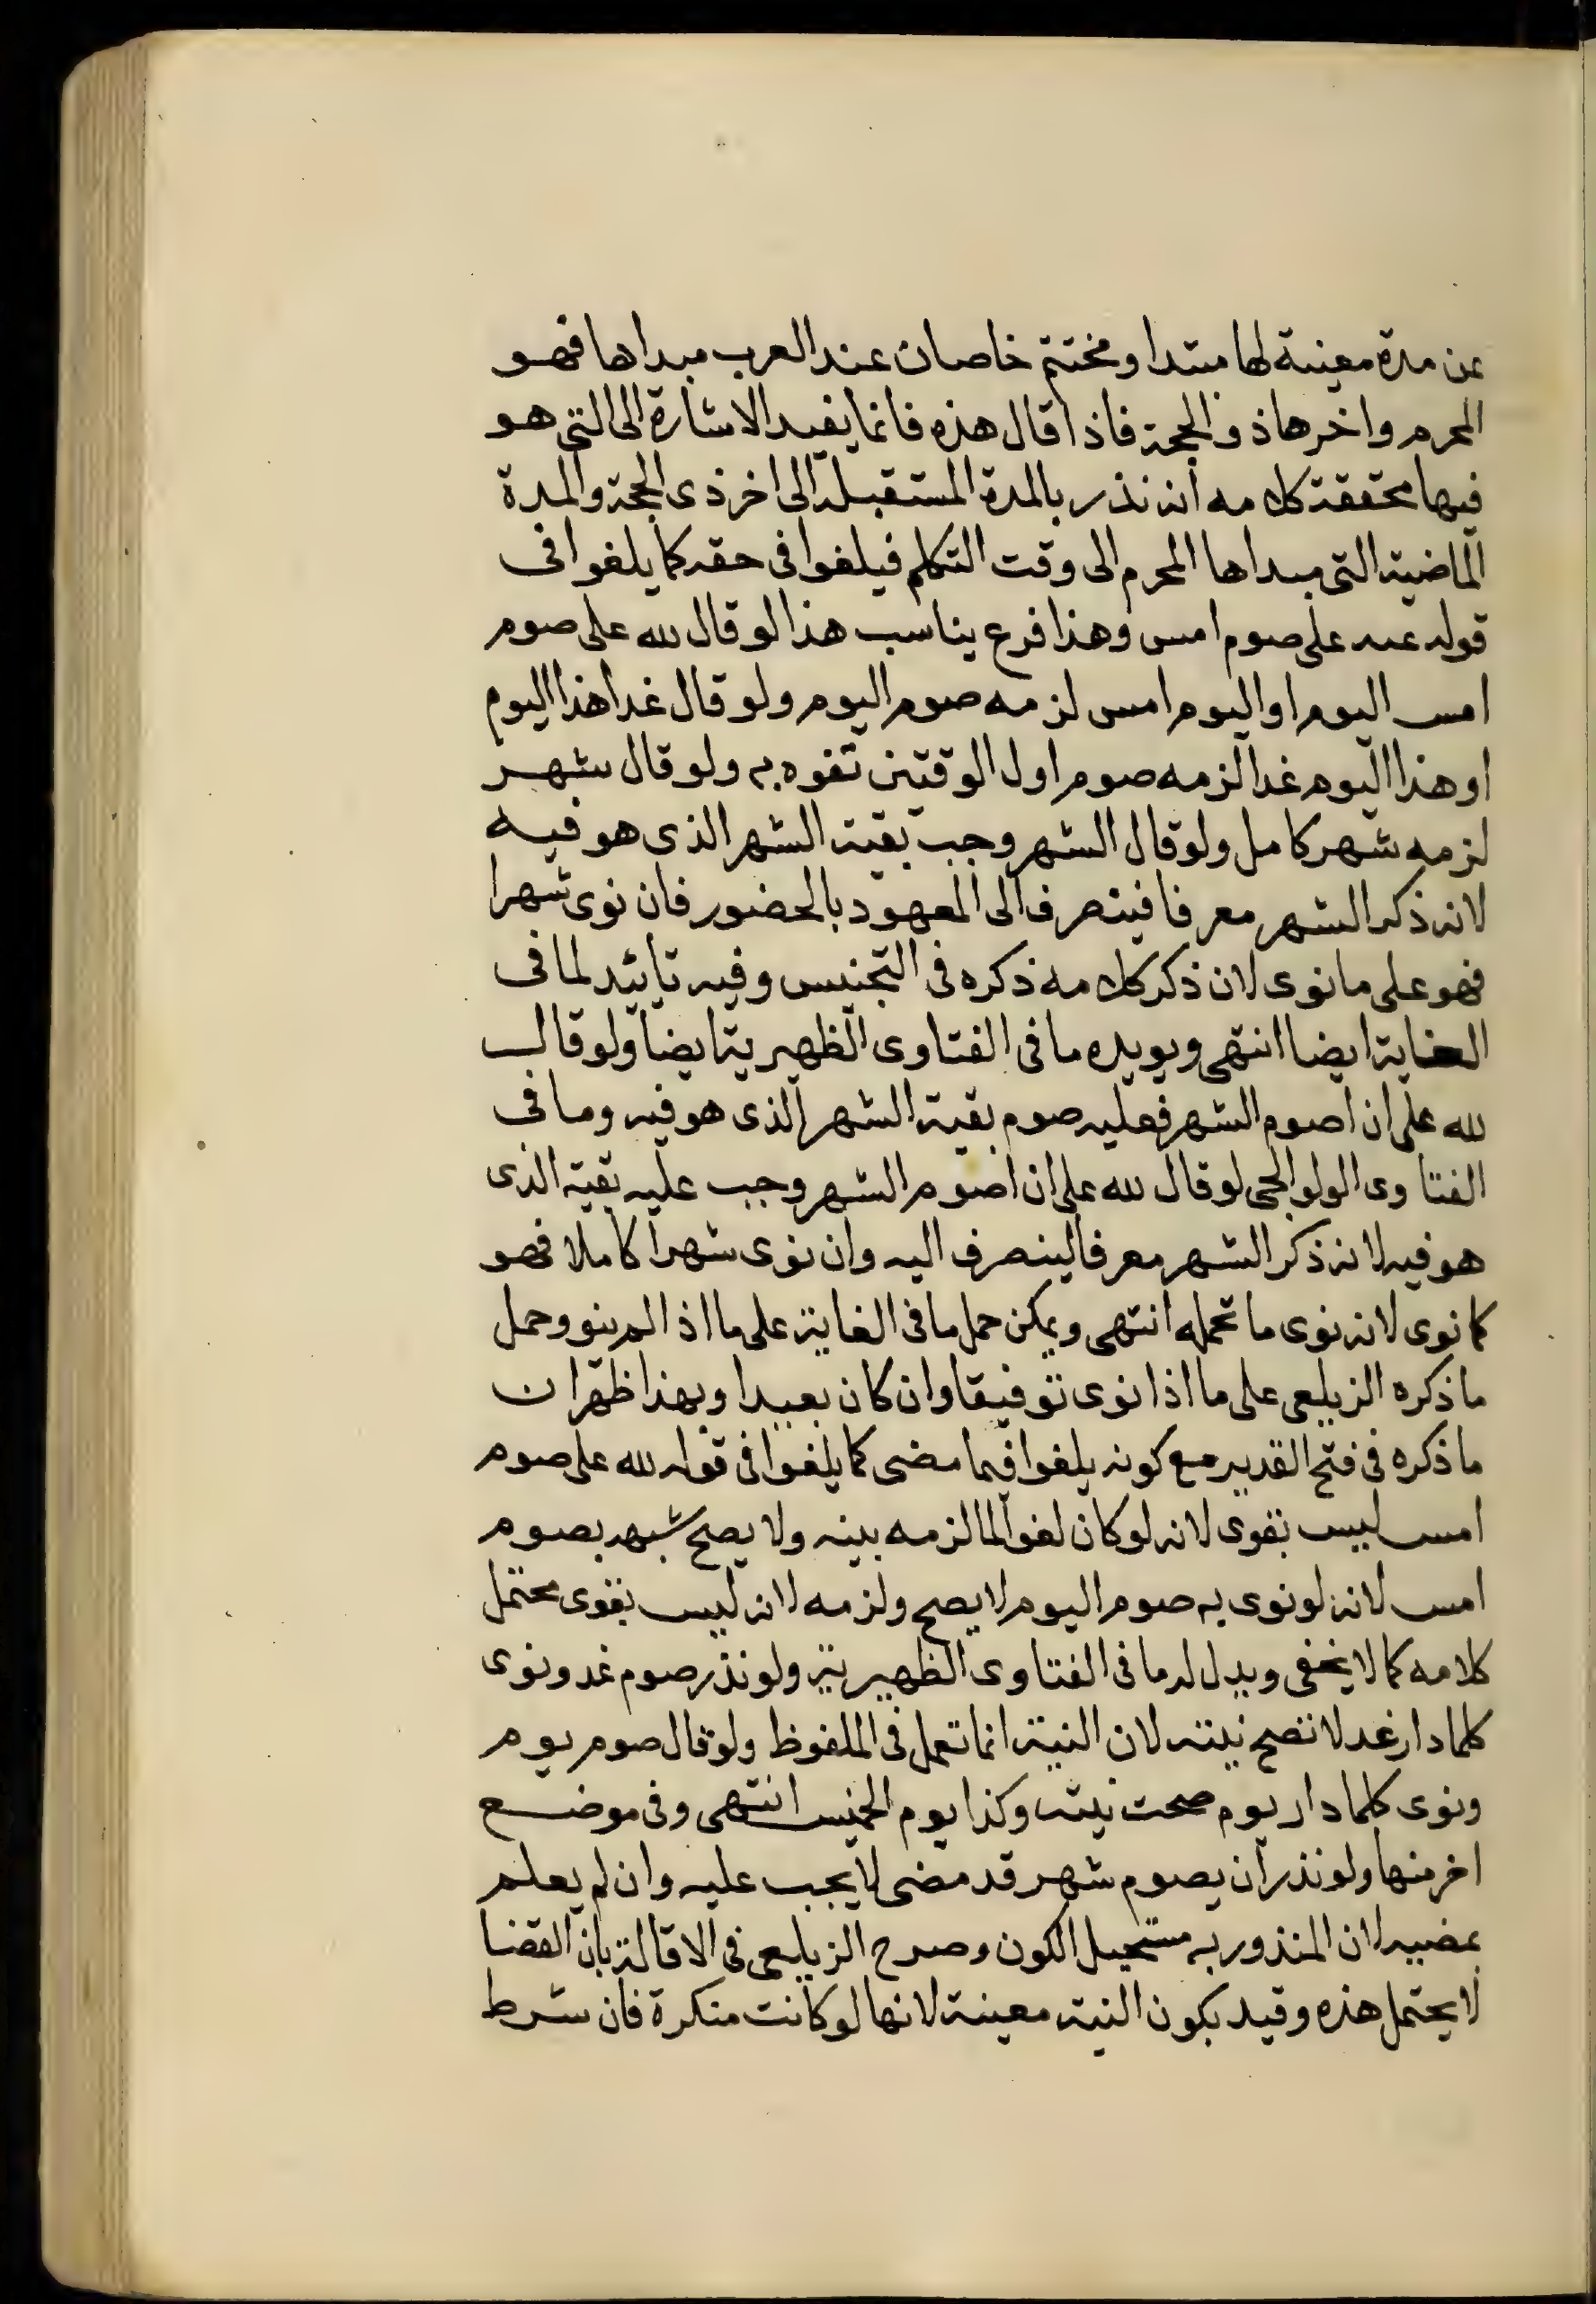 عن مدة معينة لها مبتدا ومختتم خاصان عند العرب مبداها فهو
المحرم واخرها ذو الحجة فاذا قال هذه فانما يفيد الاشارة الى التى هو
فيها محققة كلامه انه نذر بالمدة المستقبلة الى اخر ذى الحجة والمدة
الماضية التى مبداها المحرم الى وقت التكلم فيلغوا فى حقه كما يلغوا فى
قوله عنه على صوم امس وهذا فرع يناسب هذا لو قال لله على صوم
امس اليوم او اليوم امس لزمه صوم اليوم ولو قال غدا هذا اليوم
او هذا اليوم غدا لزمه صوم اول الوقتين تفوه به ولو قال شهر
لزمه شهر كامل ولو قال الشهر وجب بقية الشهر الذى هو فيه
لانه ذكر الشهر معرفا فينصرف الى المعهود بالحضور فان نوى شهرا
فهو على ما نوى لان ذكر كلامه ذكره فى التجنيس وفيه تائيد لما فى
الغاية ايضا انتهى ويويده ما فى الفتاوى الظهيرية ايضا ولو قال
لله على ان اصوم الشهر فعليه صوم بقية الشهر الذى هو فيه وما فى
الفتاوى الولوالجى لو قال لله على ان اصوم الشهر وجب عليه بقية الذى
هو فيه لانه ذكر الشهر معرفا لينصرف اليه وان نوى شهرا كاملا فهو
كما نوى لانه نوى ما تحمله انتهى ويمكن حمل ما فى الغاية على ما اذا لم ينو وحمل
ما ذكره الزيلعى على ما اذا نوى توفيقا وان كان بعيدا وبهذا ظهر ان
ما ذكره فى فتح القدير مع كونه يلغوا فيما مضى كما يلغوا فى قوله لله على صوم
امس ليس بقوى لانه لو كان لغوا لما لزمه بينه ولا يصح شبهه بصوم
امس لانه لو نوى به صوم اليوم لا يصح ولزمه لانه ليس بقوى محتمل
كلامه كما لا يخفى ويدل له ما فى الفتاوى الظهيرية ولو نذر صوم غد ونوى
كلما دار غد لا تصح نيته لان النية انما تعمل فى الملفوظ ولو قال صوم يوم
ونوى كلما دار يوم صحت نيته وكذا يوم الخميس انتهى وفى موضع
اخر منها ولو نذر ان يصوم شهر قد مضى لا يجب عليه وان لم يعلم
بمضيه لان المنذور به مستحيل الكون وصرح الزيلعى فى الاقالة بان القضا
لا يحتمل هذه وقيد بكون النية معينة لانها لو كانت منكرة فان شرط